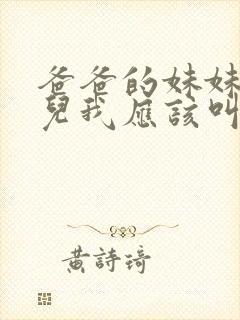 爸爸的妹妹
兒我應該叫
黃詩琦